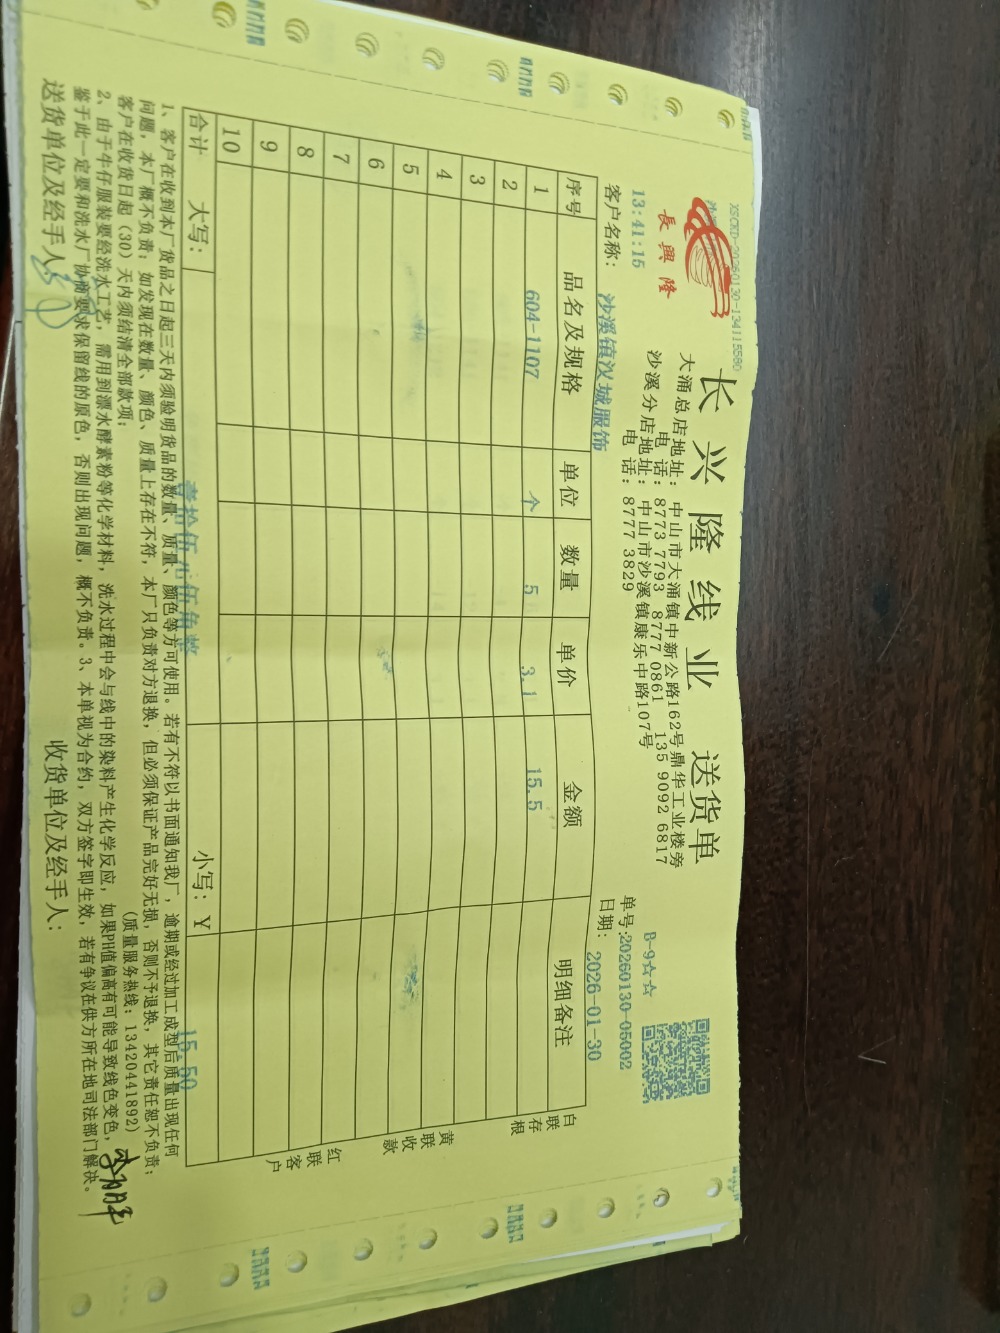 XSCKD-20260130-134115580
長興隆
长兴隆线业 送货单
大涌总店地址: 中山市大涌镇中新公路162号鼎华工业楼旁
电 话: 8773 7793 8777 0861 135 9092 6817
沙溪分店地址: 中山市沙溪镇康乐中路107号
电 话: 8777 3829
B-9☆☆
13:41:15
单号:20260130-05002
客户名称: 沙溪镇汉城服饰
日期: 2026-01-30
序号 品名及规格 单位 数量 单价 金额 明细备注
1 604-1107 个 5 3.1 15.5
2
3
4
5
6
7
8
9
10
合计 大写: 壹拾伍元伍角整 小写: Y 15.50
白联存根
黄联收款
红联客户
1、客户在收到本厂货品之日起三天内须验明货品的数量、质量、颜色等方可使用。若有不符以书面通知我厂，逾期或经过加工成型后质量出现任何
问题，本厂概不负责；如发现在数量、颜色、质量上存在不符，本厂只负责对方退换，但必须保证产品完好无损，否则不予退换，其它责任恕不负责；
客户在收货日起（30）天内须结清全部款项； (质量服务热线: 13420441892)
2、由于牛仔服装要经洗水工艺，需用到漂水酵素粉等化学材料，洗水过程中会与线中的染料产生化学反应，如果PH值偏高有可能导致线色变色，
鉴于此一定要和洗水厂协商要求保留线的原色，否则出现问题，概不负责。3、本单视为合约，双方签字即生效，若有争议在供方所在地司法部门解决。
送货单位及经手人: 收货单位及经手人: